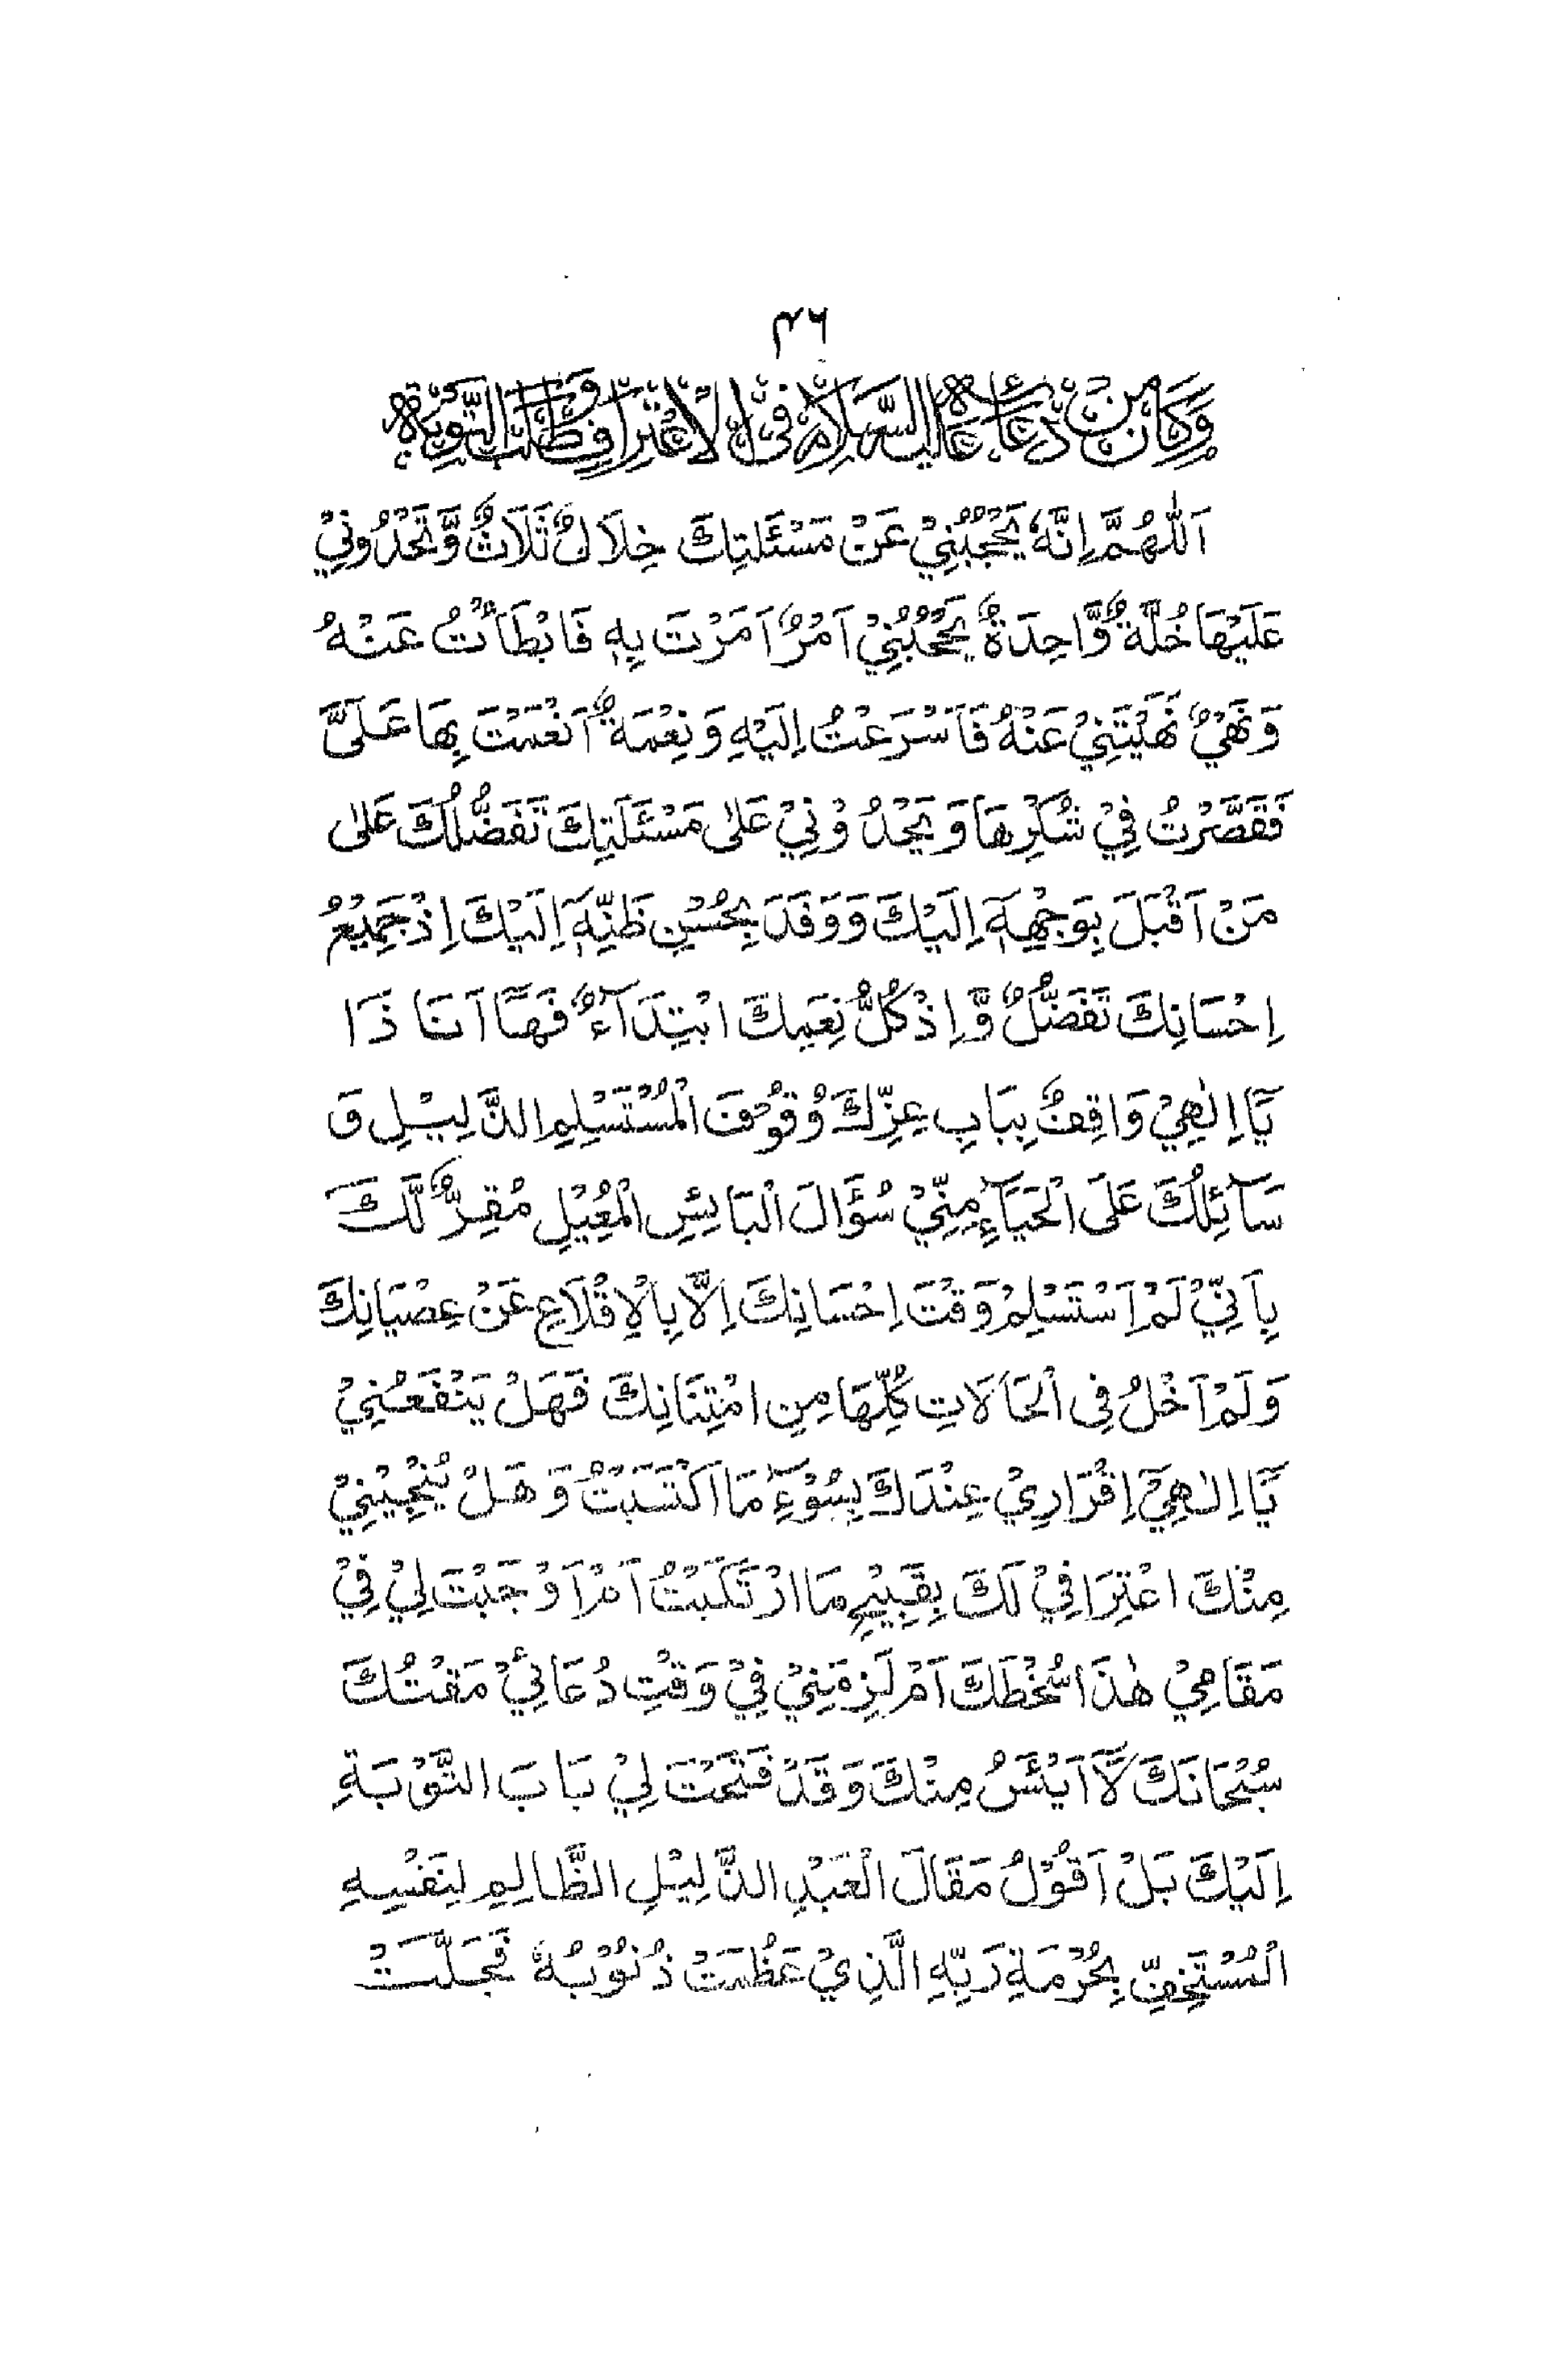 ۴۶
وَكَانَ مِنْ دُعَائِهِ عَلَيْهِ السَّلَامُ فِي الْاِعْتِرَافِ وَطَلَبِ التَّوْبَةِ
اَللّٰهُمَّ اِنَّهٗ يَحْجُبُنِيْ عَنْ مَسْئَلَتِكَ خِلَالٌ ثَلَاثٌ وَّتَحْدُوْنِيْ
عَلَيْهَا خُلَّةٌ وَّاحِدَةٌ يَحْجُبُنِيْ اَمْرٌ اَمَرْتَ بِهٖ فَابْطَأْتُ عَنْهُ
وَنَهْيٌ نَهَيْتَنِيْ عَنْهُ فَاَسْرَعْتُ اِلَيْهِ وَنِعْمَةٌ اَنْعَمْتَ بِهَا عَلَيَّ
فَقَصَّرْتُ فِيْ شُكْرِهَا وَيَحْدُوْنِيْ عَلٰى مَسْئَلَتِكَ تَفَضُّلُكَ عَلٰى
مَنْ اَقْبَلَ بِوَجْهِهٖٓ اِلَيْكَ وَوَفَدَ بِحُسْنِ ظَنِّهٖٓ اِلَيْكَ اِذْ جَمِيْعُ
اِحْسَانِكَ تَفَضُّلٌ وَّاِذْ كُلُّ نِعَمِكَ ابْتِدَآءٌ فَهَآ اَنَا ذَا
يَآ اِلٰهِيْ وَاقِفٌ بِبَابِ عِزِّكَ وُقُوْفَ الْمُسْتَسْلِمِ الذَّلِيْلِ وَ
سَآئِلُكَ عَلَى الْحَيَآءِ مِنِّيْ سُؤَالَ الْبَائِسِ الْمُعِيْلِ مُقِرٌّ لَّكَ
بِاَنِّيْ لَمْ اَسْتَسْلِمْ وَقْتَ اِحْسَانِكَ اِلَّا بِالْاِقْلَاعِ عَنْ عِصْيَانِكَ
وَلَمْ اَخْلُ فِى الْحَالَاتِ كُلِّهَا مِنِ امْتِنَانِكَ فَهَلْ يَنْفَعُنِيْ
يَآ اِلٰهِيْٓ اِقْرَارِيْ عِنْدَكَ بِسُوْٓءِ مَا اكْتَسَبْتُ وَهَلْ يُنْجِيْنِيْ
مِنْكَ اعْتِرَافِيْ لَكَ بِقَبِيْحِ مَا ارْتَكَبْتُ اَمْ اَوْجَبْتَ لِيْ فِيْ
مَقَامِيْ هٰذَا سُخْطَكَ اَمْ لَزِمَنِيْ فِيْ وَقْتِ دُعَائِيْ مَقْتُكَ
سُبْحَانَكَ لَآ اَيْئَسُ مِنْكَ وَقَدْ فَتَحْتَ لِيْ بَابَ التَّوْبَةِ
اِلَيْكَ بَلْ اَقُوْلُ مَقَالَ الْعَبْدِ الذَّلِيْلِ الظَّالِمِ لِنَفْسِهِ
الْمُسْتَخِفِّ بِحُرْمَةِ رَبِّهِ الَّذِيْ عَظُمَتْ ذُنُوْبُهٗ فَجَلَّتْ